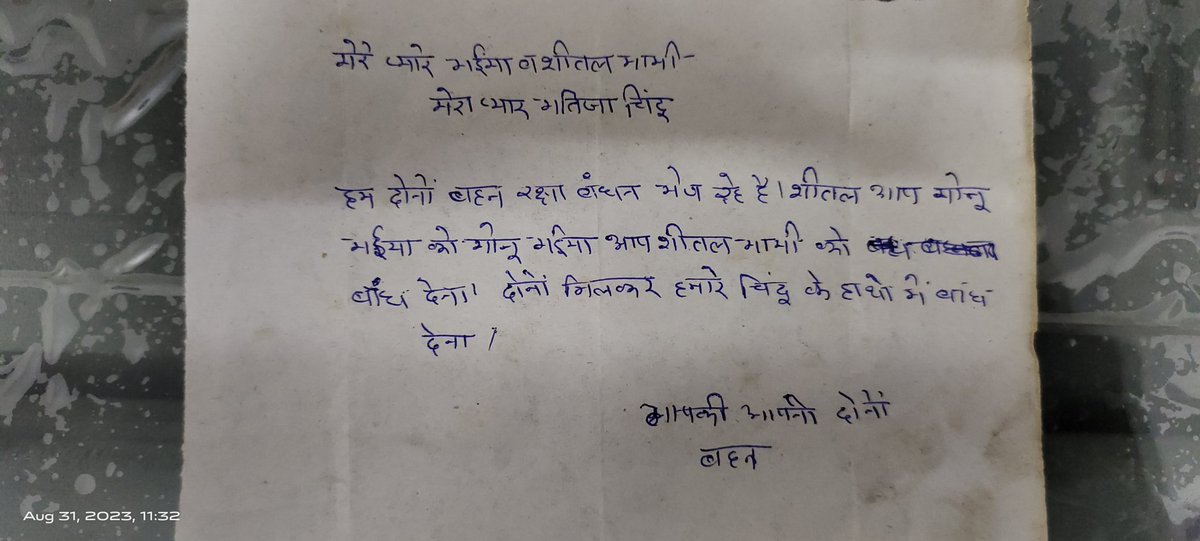 मेरे प्यारे भईया व शीतल भाभी-
मेरा प्यार भतिजा चिंटू
हम दोनों बहन रक्षा बंधन भेज रहे है। शीतल आप मोनू
भईया को मोनू भईया आप शीतल भाभी को
बाँध देना। दोनों मिलकर हमारे चिंटू के हाथो में बांध
देना।
आपकी आपनी दोनों
बहन
Aug 31, 2023, 11:32